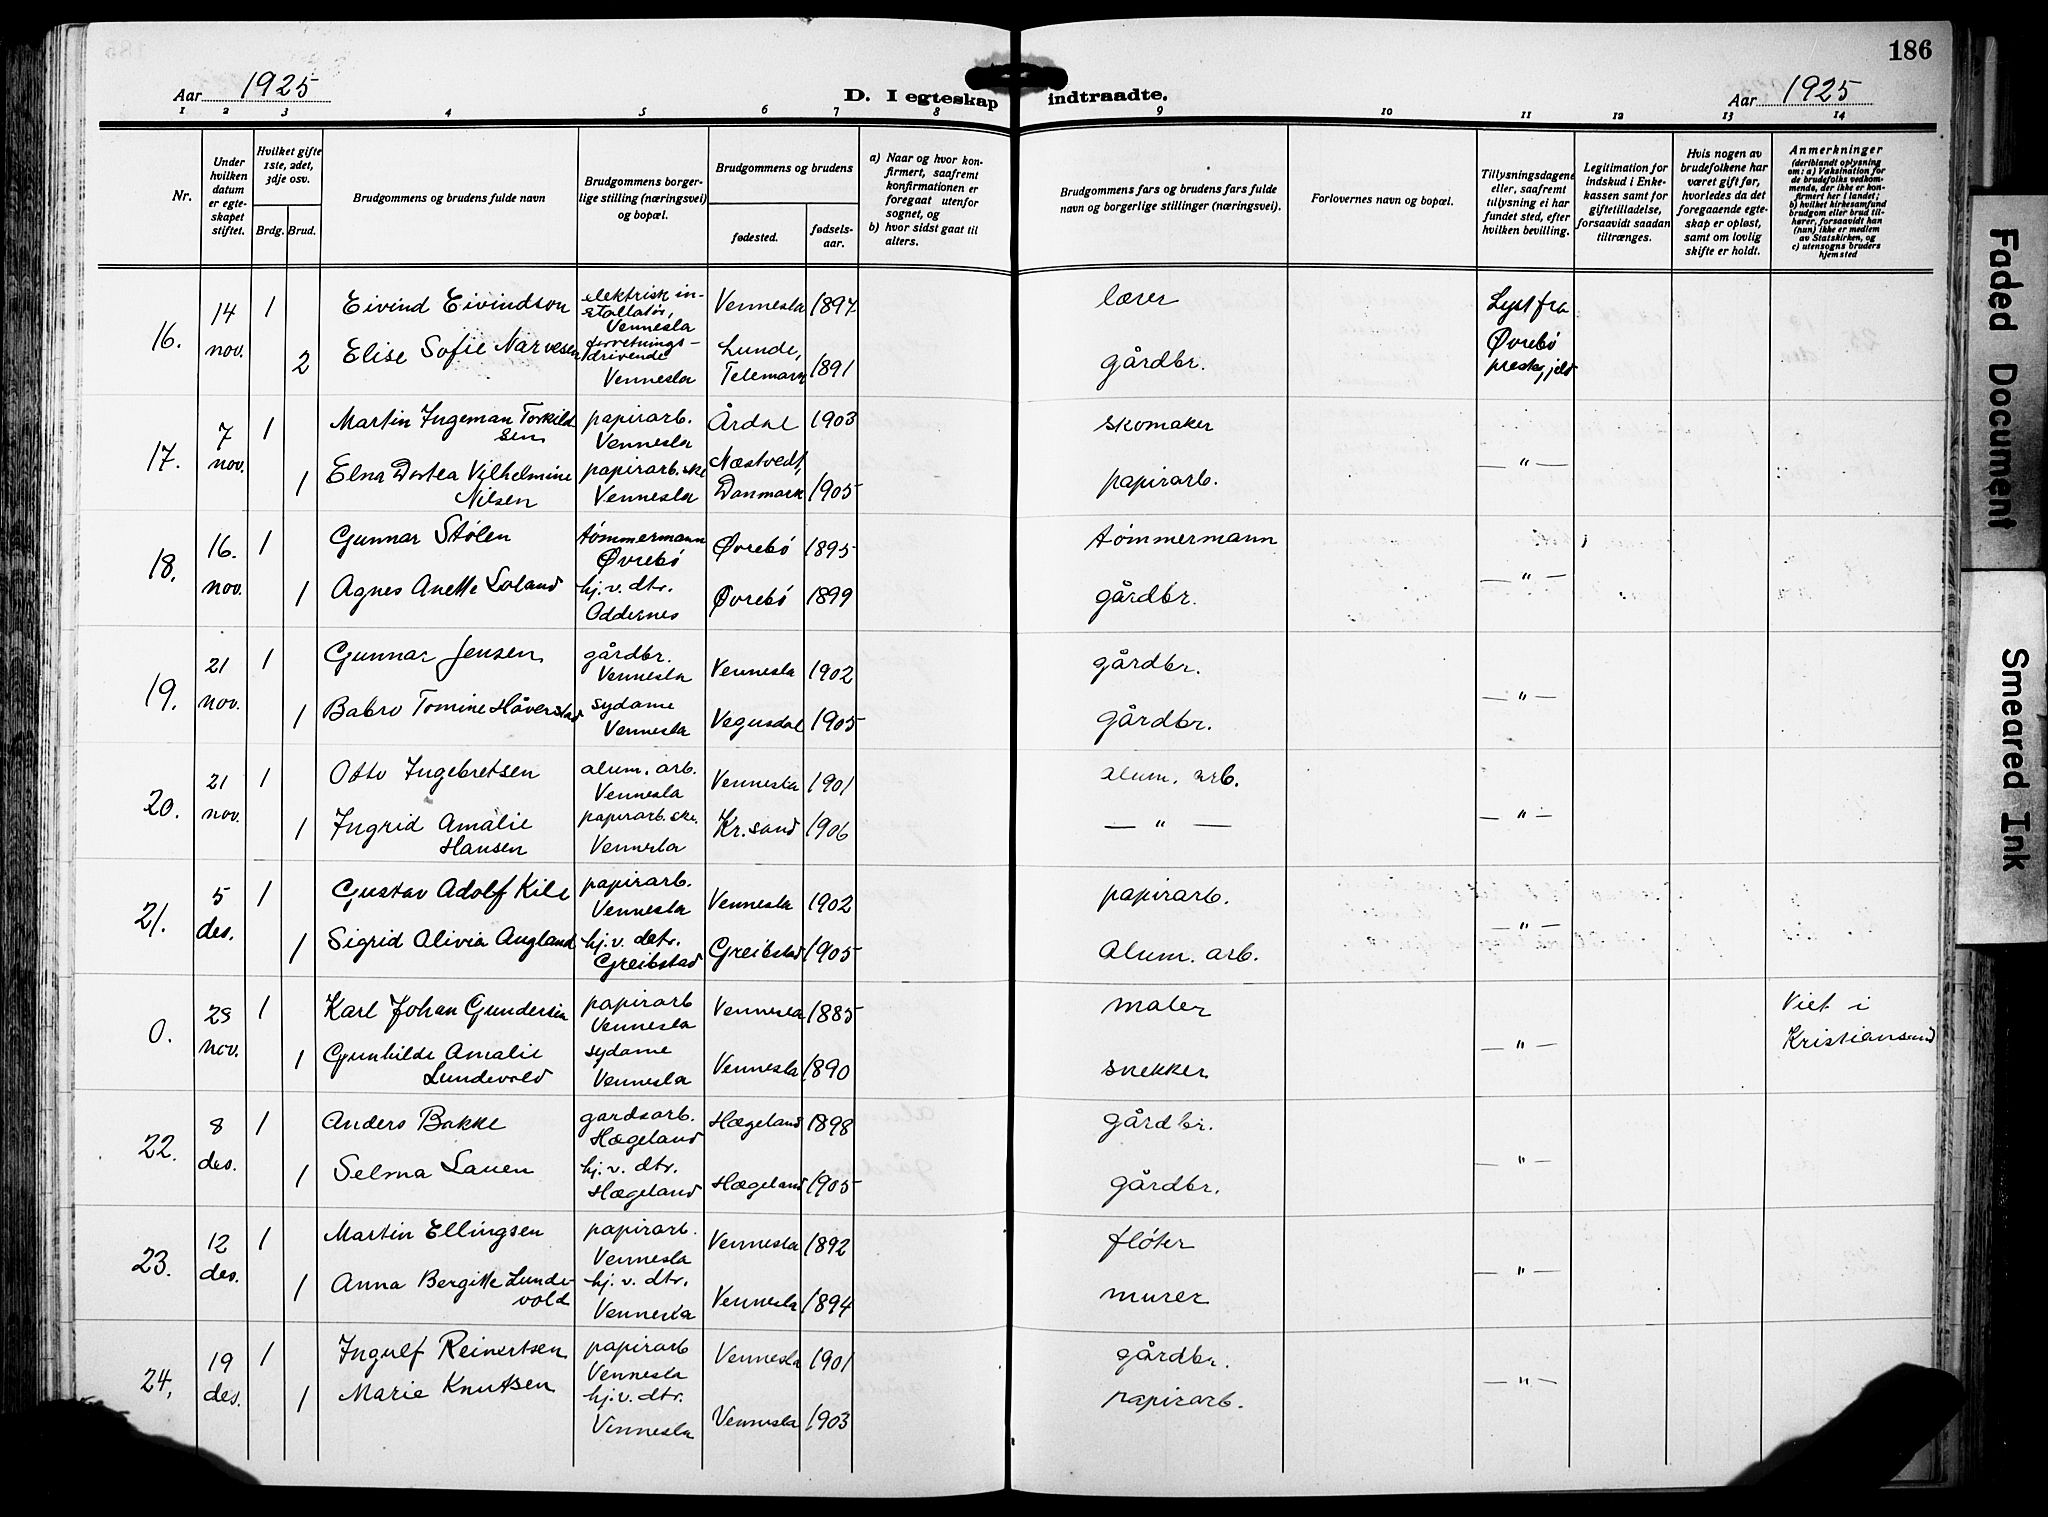 186
Aar 1925
D. I egteskap indtraadte.
Aar 1925
1 2 3 4 5 6 7 8 9 10 11 12 13 14
Nr.
Under hvilken datum er egteskapet stiftet.
Hvilket gifte 1ste, 2det, 3dje osv.
Brdg. Brud.
Brudgommens og brudens fulde navn
Brudgommens borgerlige stilling (næringsvei) og bopæl.
Brudgommens og brudens
fødested. fødselsaar.
a) Naar og hvor konfirmert, saafremt konfirmationen er foregaat utenfor sognet, og
b) hvor sidst gaat til alters.
Brudgommens fars og brudens fars fulde navn og borgerlige stillinger (næringsvei).
Forlovernes navn og bopæl.
Tillysningsdagene eller, saafremt tillysning ei har fundet sted, efter hvilken bevilling.
Legitimation for indskud i Enkekassen samt for giftetilladelse, forsaavidt saadan tiltrænges.
Hvis nogen av brudefolkene har været gift før, hvorledes da det foregaaende egteskap er opløst, samt om lovlig skifte er holdt.
Anmerkninger
(deriblandt oplysning om: a) Vaksination for de brudefolks vedkommende, der ikke er konfirmert her i landet; b) hvilket kirkesamfund brudgom eller brud tilhører, forsaavidt han (hun) ikke er medlem av Statskirken, og c) utensogns bruders hjemsted
16. 14 nov. 1 Eivind Eivindson elektrisk installatør, Vennesla Vennesla 1897 lærer Lyst fra Øvrebø prestegjeld
2 Elise Sofie Narvesen forretningsdrivende Vennesla Lunde, Telemark 1891 gårdbr.
17. 7 nov. 1 Martin Ingeman Torkildsen papirarb. Vennesla Årdal 1903 skomaker — " —
1 Elna Dortea Vilhelmine Nilsen papirarb.ske Vennesla Næstvedt, Danmark 1905 papirarb.
18. 16. nov. 1 Gunnar Stølen tømmermann Øvrebø Øvrebø 1895 tømmermann — " —
1 Agnes Anette Loland hj. v. dtr. Oddernes Øvrebø 1899 gårdbr.
19. 21 nov. 1 Gunnar Jensen gårdbr. Vennesla Vennesla 1902 gårdbr. — " —
1 Babro Tomine Håverstad sydame Vennesla Vegusdal 1905 gårdbr.
20. 21 nov. 1 Otto Ingebretsen alum. arb. Vennesla Vennesla 1901 alum. arb. — " —
1 Ingrid Amalie Hansen papirarb.ske. Vennesla Kr.sand 1906 — " —
21. 5 des. 1 Gustav Adolf Kile papirarb. Vennesla Vennesla 1902 papirarb. — " —
1 Sigrid Alivia Augland hj. v. detr. Greibstad Greibstad 1905 alum. arb.
0. 29 nov. 1 Karl Johan Gundersen papirarb Vennesla Vennesla 1885 maler — " — Viet i Kristiansund
1 Gunhilde Amalie Lundevold sydame Vennesla Vennesla 1890 snekker
22. 8 des. 1 Anders Bakke gardsarb. Hægeland Hægeland 1898 gårdbr. — " —
1 Selma Lauen hj. v. dtr. Hægeland Hægeland 1905 gårdbr.
23. 12 des. 1 Martin Ellingsen papirarb. Vennesla Vennesla 1892 fløter — " —
1 Anna Bergitte Lundevold hj. v. dtr. Vennesla Vennesla 1894 murer
24. 19 des. 1 Ingulf Reinertsen papirarb Vennesla Vennesla 1901 gårdbr. — " —
1 Marie Knutsen hj. v. dtr. Vennesla Vennesla 1903 papirarb.
Faded Document
Smeared Ink